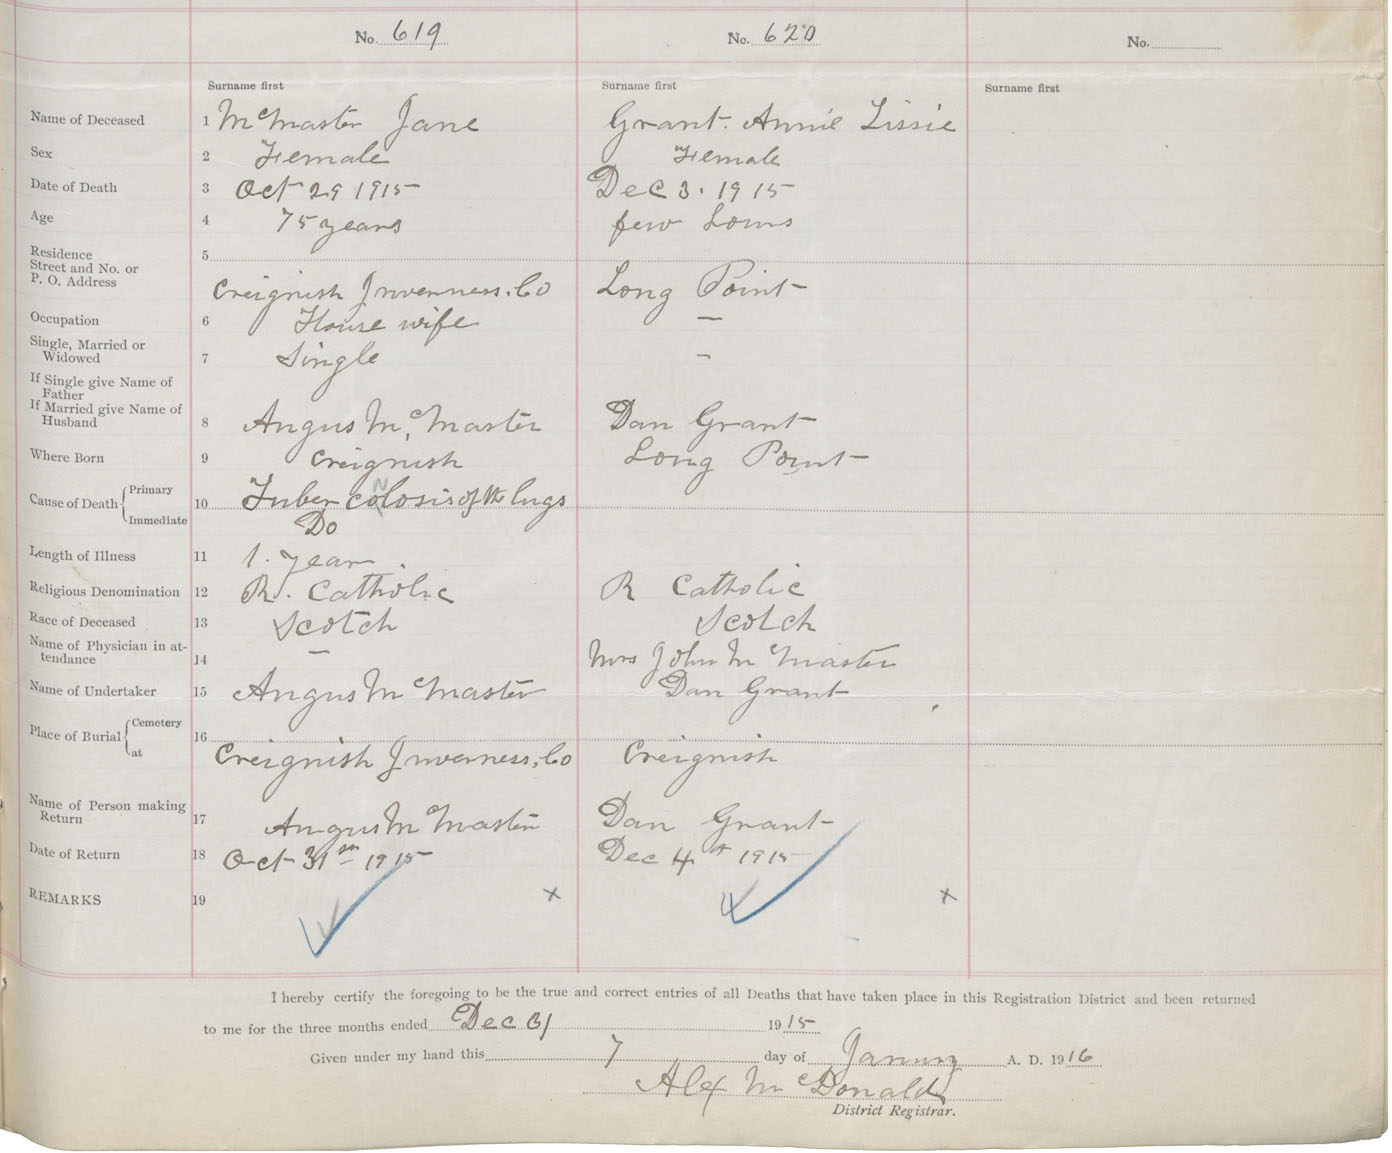 No. 619 No. 620 No.
Surname first Surname first Surname first
Name of Deceased 1 McMaster Jane Grant. Annie Lissie
Sex 2 Female Female
Date of Death 3 Oct 29 1915 Dec 3. 1915
Age 4 75 years few hours
Residence 5
Street and No. or
P. O. Address Creignish Inverness. Co Long Point
Occupation 6 House wife —
Single, Married or
Widowed 7 Single –
If Single give Name of
Father
If Married give Name of
Husband 8 Angus McMaster Dan Grant
Where Born 9 Creignish Long Point
Cause of Death { Primary 10 Tubercolosis of the lugs
Immediate Do
Length of Illness 11 1. year
Religious Denomination 12 R. Catholic R Catholic
Race of Deceased 13 Scotch Scotch
Name of Physician in at-
tendance 14 — Mrs John McMaster
Name of Undertaker 15 Angus McMaster Dan Grant
Place of Burial { Cemetery 16
at Creignish Inverness, Co Creignish
Name of Person making
Return 17 Angus McMaster Dan Grant
Date of Return 18 Oct 31 1915 Dec 4 1915
REMARKS 19 x x
I hereby certify the foregoing to be the true and correct entries of all Deaths that have taken place in this Registration District and been returned
to me for the three months ended Dec 31 1915
Given under my hand this 7 day of January A. D. 1916
Alex McDonald
District Registrar.